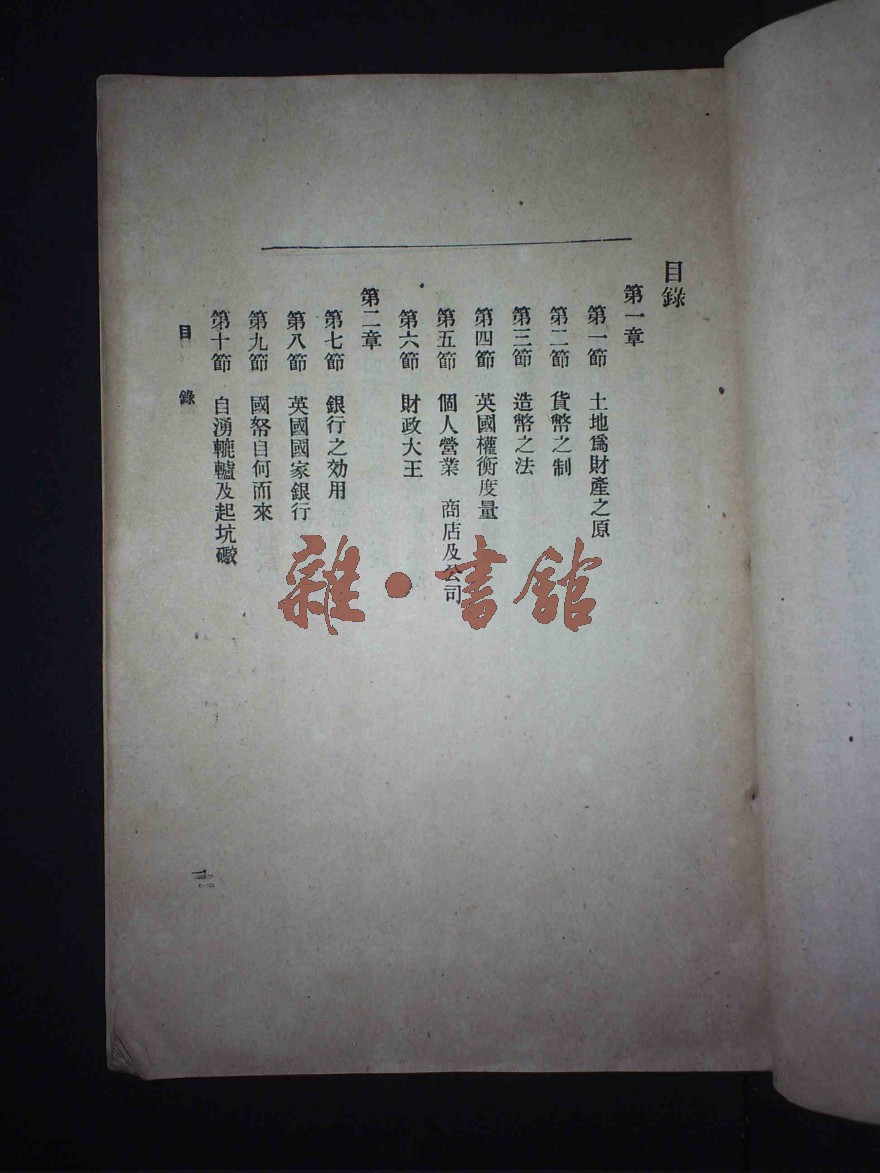 目錄
第一章
第一節 土地爲財產之原
第二節 貨幣之制
第三節 造幣之法
第四節 英國權衡度量
第五節 個人營業 商店及公司
第六節 財政大王
第二章
第七節 銀行之効用
第八節 英國國家銀行
第九節 國帑自何而來
第十節 自湧轆轤及起坑礮
目錄
一
雜·書館